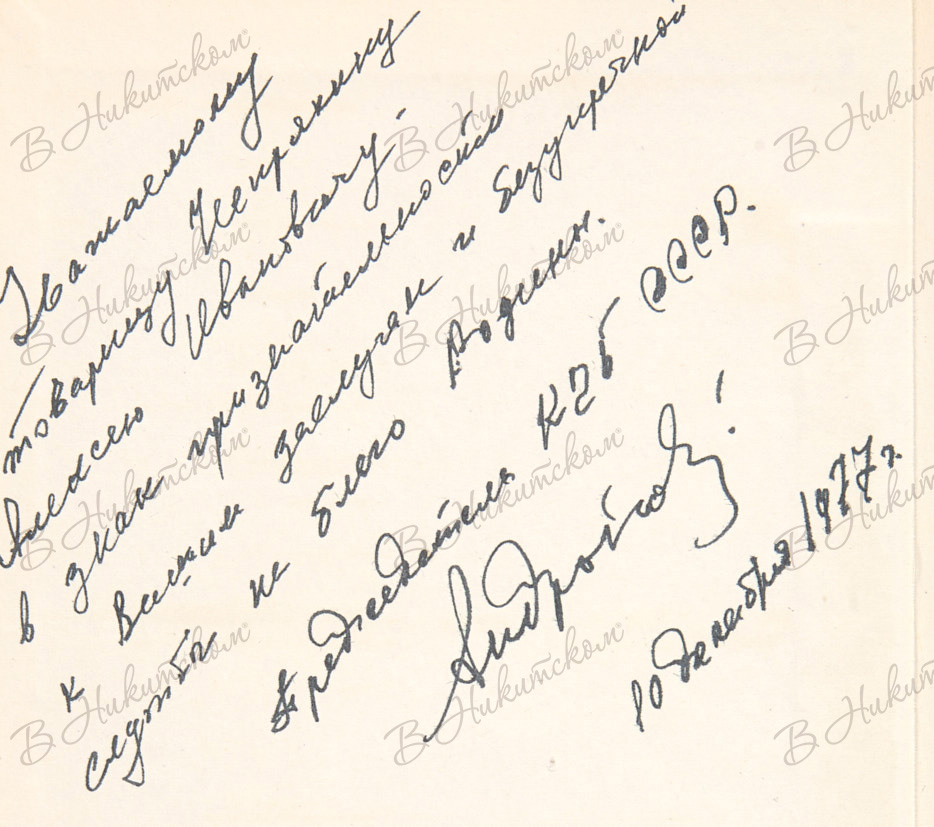 Уважаемому
товарищу Непряхину
Алексею Ивановичу -
в знак признательности
к Вашим заслугам и безупречной
службы на благо Родины.
Председатель КГБ СССР.
Андропов!
10 декабря 1977 г.
В Никитском
В Никитском
В Никитском
В Никитском
В Никитском
В Никитском
В Никитском
В Никитском
В Никитском
В Никитском
В Никитском
В Никитском